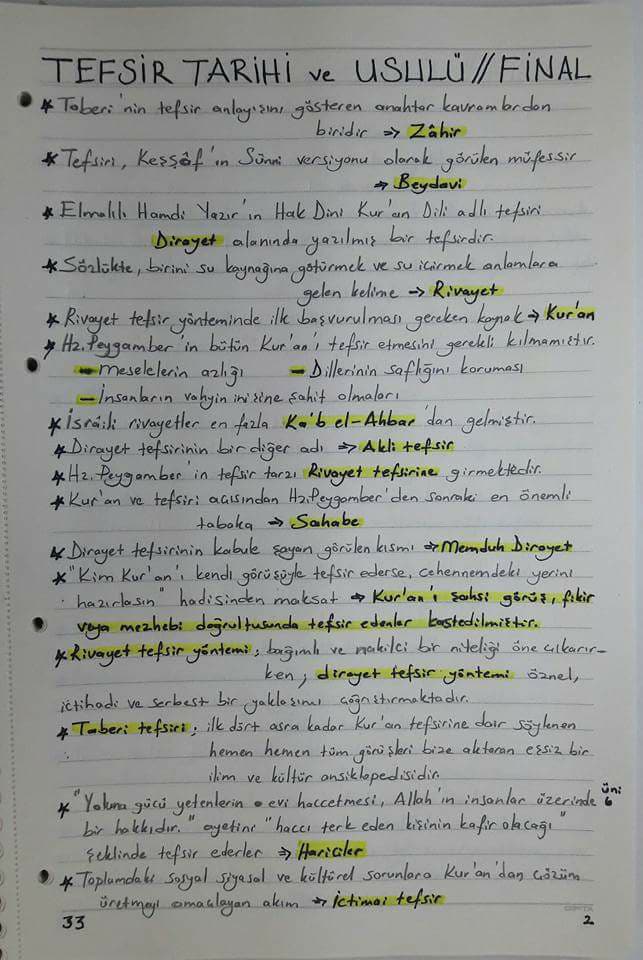 TEFSİR TARİHİ ve USULÜ // FİNAL
* Taberi'nin tefsir anlayışını gösteren anahtar kavramlardan
biridir ⇒ Zâhir
* Tefsiri, Keşşâf'ın Sünni versiyonu olarak görülen müfessir
⇒ Beydavi
* Elmalılı Hamdi Yazır'ın Hak Dini Kur'an Dili adlı tefsiri
Dirayet alanında yazılmış bir tefsirdir.
* Sözlükte, birini su kaynağına götürmek ve su içirmek anlamlara
gelen kelime ⇒ Rivayet
* Rivayet tefsir yönteminde ilk başvurulması gereken kaynak ⇒ Kur'an
* Hz. Peygamber'in bütün Kur'an'ı tefsir etmesini gerekli kılmamıştır.
- Meselelerin azlığı - Dillerinin saflığını koruması
- İnsanların vahyin inişine şahit olmaları
* İsrâili rivayetler en fazla Ka'b el-Ahbar'dan gelmiştir.
* Dirayet tefsirinin bir diğer adı ⇒ Akli tefsir
* Hz. Peygamber'in tefsir tarzı Rivayet tefsirine girmektedir.
* Kur'an ve tefsiri açısından Hz. Peygamber'den sonraki en önemli
tabaka ⇒ Sahabe
* Dirayet tefsirinin kabule şayan görülen kısmı ⇒ Memduh Dirayet
* "Kim Kur'an'ı kendi görüşüyle tefsir ederse, cehennemdeki yerini
hazırlasın" hadisinden maksat ⇒ Kur'an'ı şahsi görüş, fikir
veya mezhebi doğrultusunda tefsir edenler kastedilmiştir.
* Rivayet tefsir yöntemi; bağımlı ve nakilci bir niteliği öne çıkarır-
ken; dirayet tefsir yöntemi öznel,
ictihadi ve serbest bir yaklaşımı çağrıştırmaktadır.
* Taberi tefsiri; ilk dört asra kadar Kur'an tefsirine dair söylenen
hemen hemen tüm görüşleri bize aktaran eşsiz bir
ilim ve kültür ansiklopedisidir.
* "Yoluna gücü yetenlerin o evi haccetmesi, Allah'ın insanlar üzerinde üni 6
bir hakkıdır." ayetini "haccı terk eden kişinin kafir olacağı"
şeklinde tefsir ederler ⇒ Hariciler
* Toplumdaki sosyal siyasal ve kültürel sorunlara Kur'an'dan çözüm
üretmeyi amaçlayan akım ⇒ İctimai tefsir
33 2